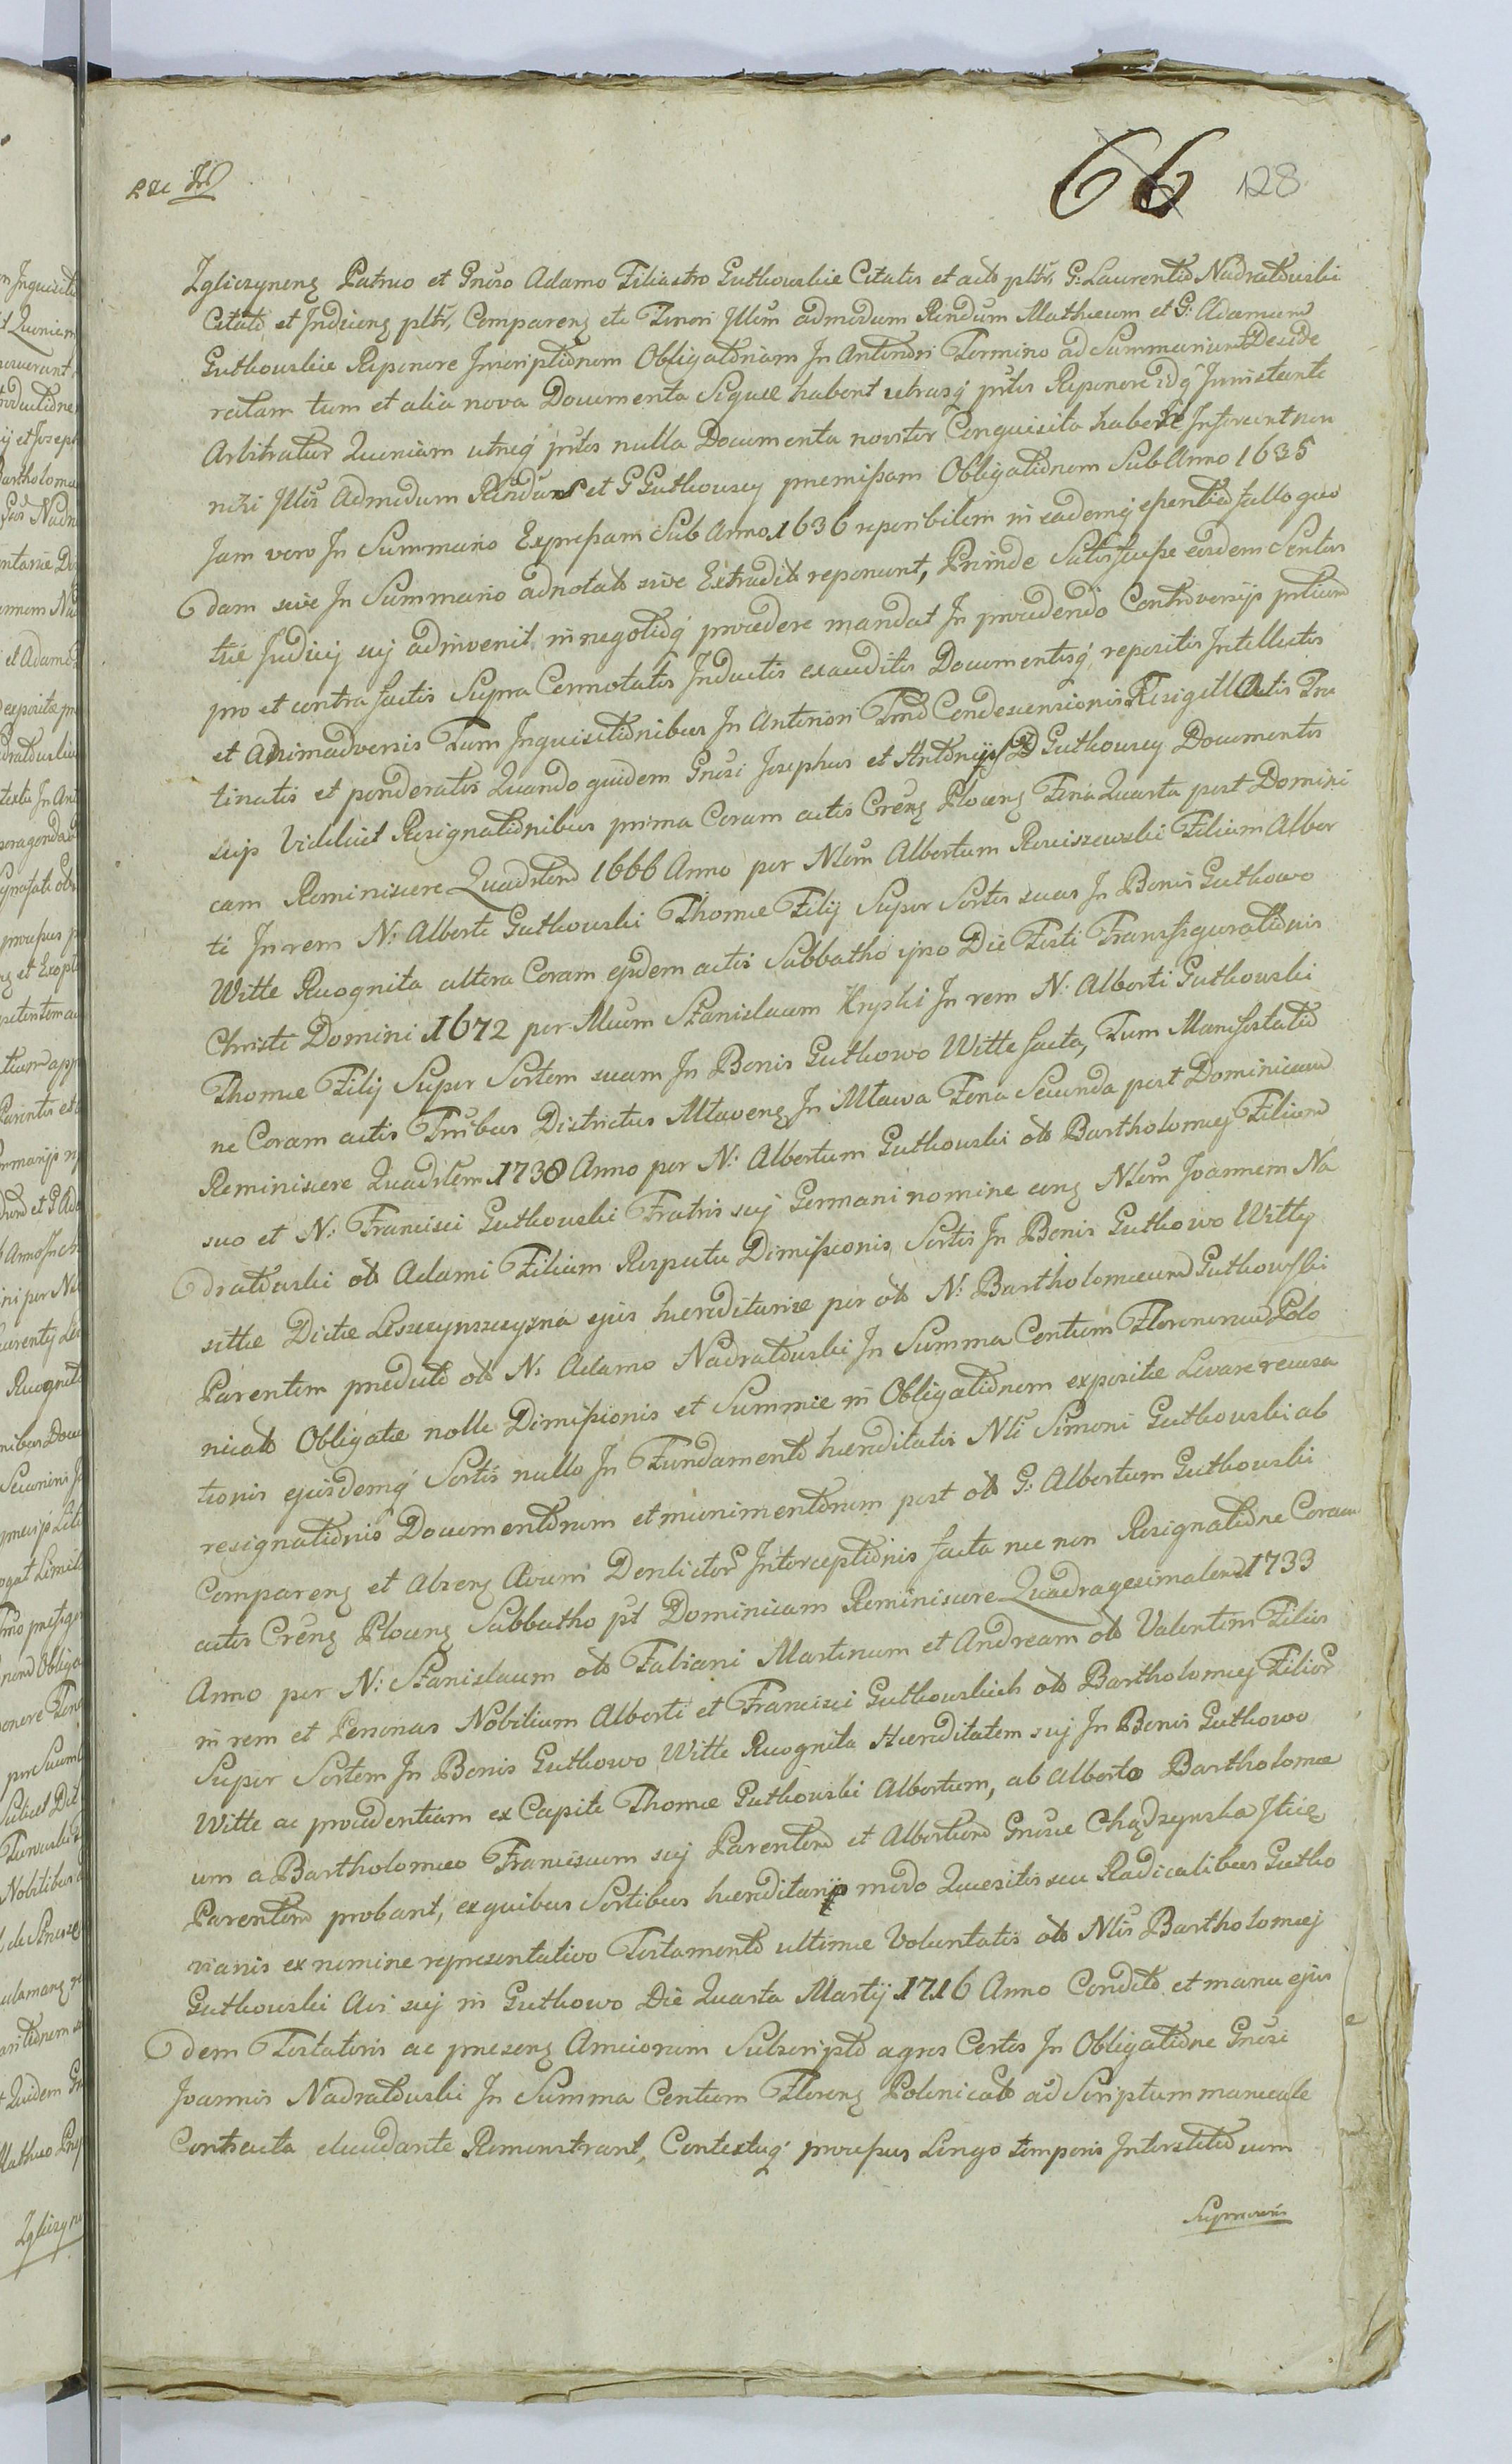 66 128
Zgliczynens Patruo et Gnoso Adamo Filiastro Gutkowskie Citatis et actò pltr, G: Laurentiò Nadratowski
Citatò et Indicens pltr, Comparens etc Tenori Illum admodum Rndum Mathæum et G: Adamum
Gutkowskie Reponere Inscriptiõnem Obligatõriam In Anteriõri Termino ad Summarium Deside
ratam tum et alia nova Documenta Siquæ habent utrasq ptes Reponere idq Juristante
Arbitratur Quoniam utræq ptes nulla Documenta noviter Conquisita habere Inferunt non
nisi Illris Admodum Rndus et G Gutkowscy præmissam Obligatiõnem Sub Anno 1635
Jam vero In Summario Expressam Sub Anno 1636 reperibilem in eademq
dam sive In Summario adnotatò sive Extraditò reponunt, Proinde Satisfecisse eisdem Senten
tiæ Judicij sui adinvenit, in negotioq procedere mandat In procedendo Controversijs ptium
pro et contra factis Supra Connotatis Inductis exauditis Documentisq repositis Intellectis
et Animadversis Tum Inquisitiõnibus In Anteriori Tmõ Condescensionis Resigillatis Tru
tinatis et ponderatis Quando quidem Gnosi Josephus et Antõnius Gutkowscy Documentis
suis Videlicet Resignatiõnibus prima Coram actis Crens Plocens Feria Quarta post Domini
cam Reminiscere Quadrlem 1666 Anno per Nlem Albertum Rosciszewski Filium Alber
ti In rem N: Alberti Gutkowski Thomæ Filij Super Sortes suas In Bonis Gutkowo
Witte Recognita altera Coram ejsdem actis Sabbatho ipso Die Festi Transfiguratiõnis
Christi Domini 1672 per Nlem Stanislaum Krynski In rem N: Alberti Gutkowski
Thomæ Filij Super Sortem suam In Bonis Gutkowo Witte facta, Tum Manifestatiõ
ne Coram actis Trribus Districtus Mlavens In Mlawa Feria Secunda post Dominicam
Reminiscere Quadrlem 1738 Anno per N: Albertum Gutkowski olò Bartholomej Filium
suo et N: Francisci Gutkowski Fratris suj Germani nomine cons Nlem Joannem Na
dratowski olò Adami Filium Respectu Dimissionis Sortis In Bonis Gutkowo Witty
sittæ Dictæ Leszczynszczyzna ejus hæreditariæ per olò N: Bartholomæum Gutkowski
Parentem prædictò olò N: Adamo Nadratowski In Summa Centum Florenorum Polo
nicalò Obligatæ nolle Dimissionis et Summæ in Obligatiõnem expositæ Levare recusa
tionis ejusdemq Sortis nullo In Fundamentò hæreditatis Nli Simoni Gutkowski ab
resignatiõnis Documentõrum et munimentõrum post olò G: Albertum Gutkowski
Comparens et Absens Avum Derelictor Interceptiõnis facta nec non Resignatiõne Coram
actis Crens Plocens Sabbatho pt Dominicam Reminiscere Quadragesimalem 1733
Anno per N: Stanislaum olò Fabiani Martinum et Andream olò Valentini Filios
in rem et Personas Nobilium Alberti et Francisci Gutkowskich olò Bartholomej Filior
Super Sortem In Bonis Gutkowo Witte Recognita Hæreditatem suj In Bonis Gutkowo
Witte ac procedentiam ex Capite Thomæ Gutkowski Albertum, ab Alberto Bartholomæ
um a Bartholomæo Franciscum suj Parentem et Albertum Gnosæ Chądzynska Iticz
Parentem probant, ex quibus Sortibus hæreditarijs modo Quæsitis seu Radicalibus Gutko
vianis ex nomine repræsentativo Testamentò ultimæ Voluntatis olò Nlis Bartholomæj
Gutkowski Avi suj in Gutkowo Die Quarta Martij 1716 Anno Conditò et manu ejus
dem Testatoris ac præsens Amicorum Subscriptò agros Certos In Obligatiõne Gnosi
Joannis Nadratowski In Summa Centum Florens Polonicalò ad Scriptum manuale
Contracta elucidante Remonstrant, Contextuq processus Longo temporis Interstitiò cum